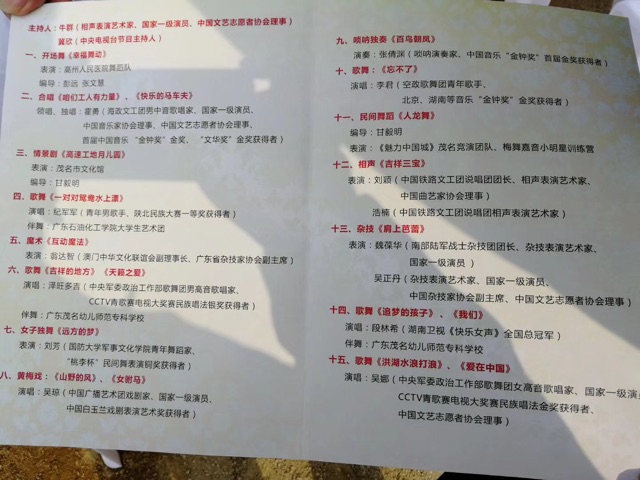 主持人：牛群（相声表演艺术家、国家一级演员、中国文艺志愿者协会理事）
冀欣（中央电视台节目主持人）
一、开场舞《幸福舞动》
表演：高州人民医院舞蹈队
编导：彭远 张文慧
二、合唱《咱们工人有力量》、《快乐的马车夫》
领唱、独唱：霍勇（海政文工团男中音歌唱家、国家一级演员、
中国音乐家协会理事、中国文艺志愿者协会理事、
首届中国音乐“金钟奖”金奖、“文华奖”金奖获得者）
三、情景剧《高速工地月儿圆》
表演：茂名市文化馆
编导：甘毅明
四、歌舞《一对对鸳鸯水上漂》
演唱：纪军军（青年男歌手、陕北民族大赛一等奖获得者）
伴舞：广东石油化工学院大学生艺术团
五、魔术《互动魔法》
表演：翁达智（澳门中华文化联谊会副理事长、广东省杂技家协会副主席）
六、歌舞《吉祥的地方》《天籁之爱》
演唱：泽旺多吉（中央军委政治工作部歌舞团男高音歌唱家、
CCTV青歌赛电视大奖赛民族唱法银奖获得者）
伴舞：广东茂名幼儿师范专科学校
七、女子独舞《远方的梦》
表演：刘芳（国防大学军事文化学院青年舞蹈家、
“桃李杯”民间舞表演铜奖获得者）
八、黄梅戏：《山野的风》、《女驸马》
演唱：吴琼（中国广播艺术团戏剧家、国家一级演员、
中国白玉兰戏剧表演艺术奖获得者）
九、唢呐独奏《百鸟朝凤》
演奏：张倩渊（唢呐演奏家、中国音乐“金钟奖”首届金奖获得者）
十、歌舞：《忘不了》
演唱：李君（空政歌舞团青年歌手、
北京、湖南等音乐“金钟奖”金奖获得者）
十一、民间舞蹈《人龙舞》
编导：甘毅明
表演：《魅力中国城》茂名竞演团队、梅舞嘉音小明星训练营
十二、相声《吉祥三宝》
表演：刘颖（中国铁路文工团说唱团团长、相声表演艺术家、
中国曲艺家协会理事）
浩楠（中国铁路文工团说唱团相声表演艺术家）
十三、杂技《肩上芭蕾》
表演：魏葆华（南部陆军战士杂技团团长、杂技表演艺术家、
国家一级演员）
吴正丹（杂技表演艺术家、国家一级演员、
中国杂技家协会副主席、中国文艺志愿者协会理事）
十四、歌舞《追梦的孩子》、《我们》
演唱：段林希（湖南卫视《快乐女声》全国总冠军）
伴舞：广东茂名幼儿师范专科学校
十五、歌舞《洪湖水浪打浪》、《爱在中国》
演唱：吴娜（中央军委政治工作部歌舞团女高音歌唱家、国家一级演
CCTV青歌赛电视大奖赛民族唱法金奖获得者、
中国文艺志愿者协会理事）